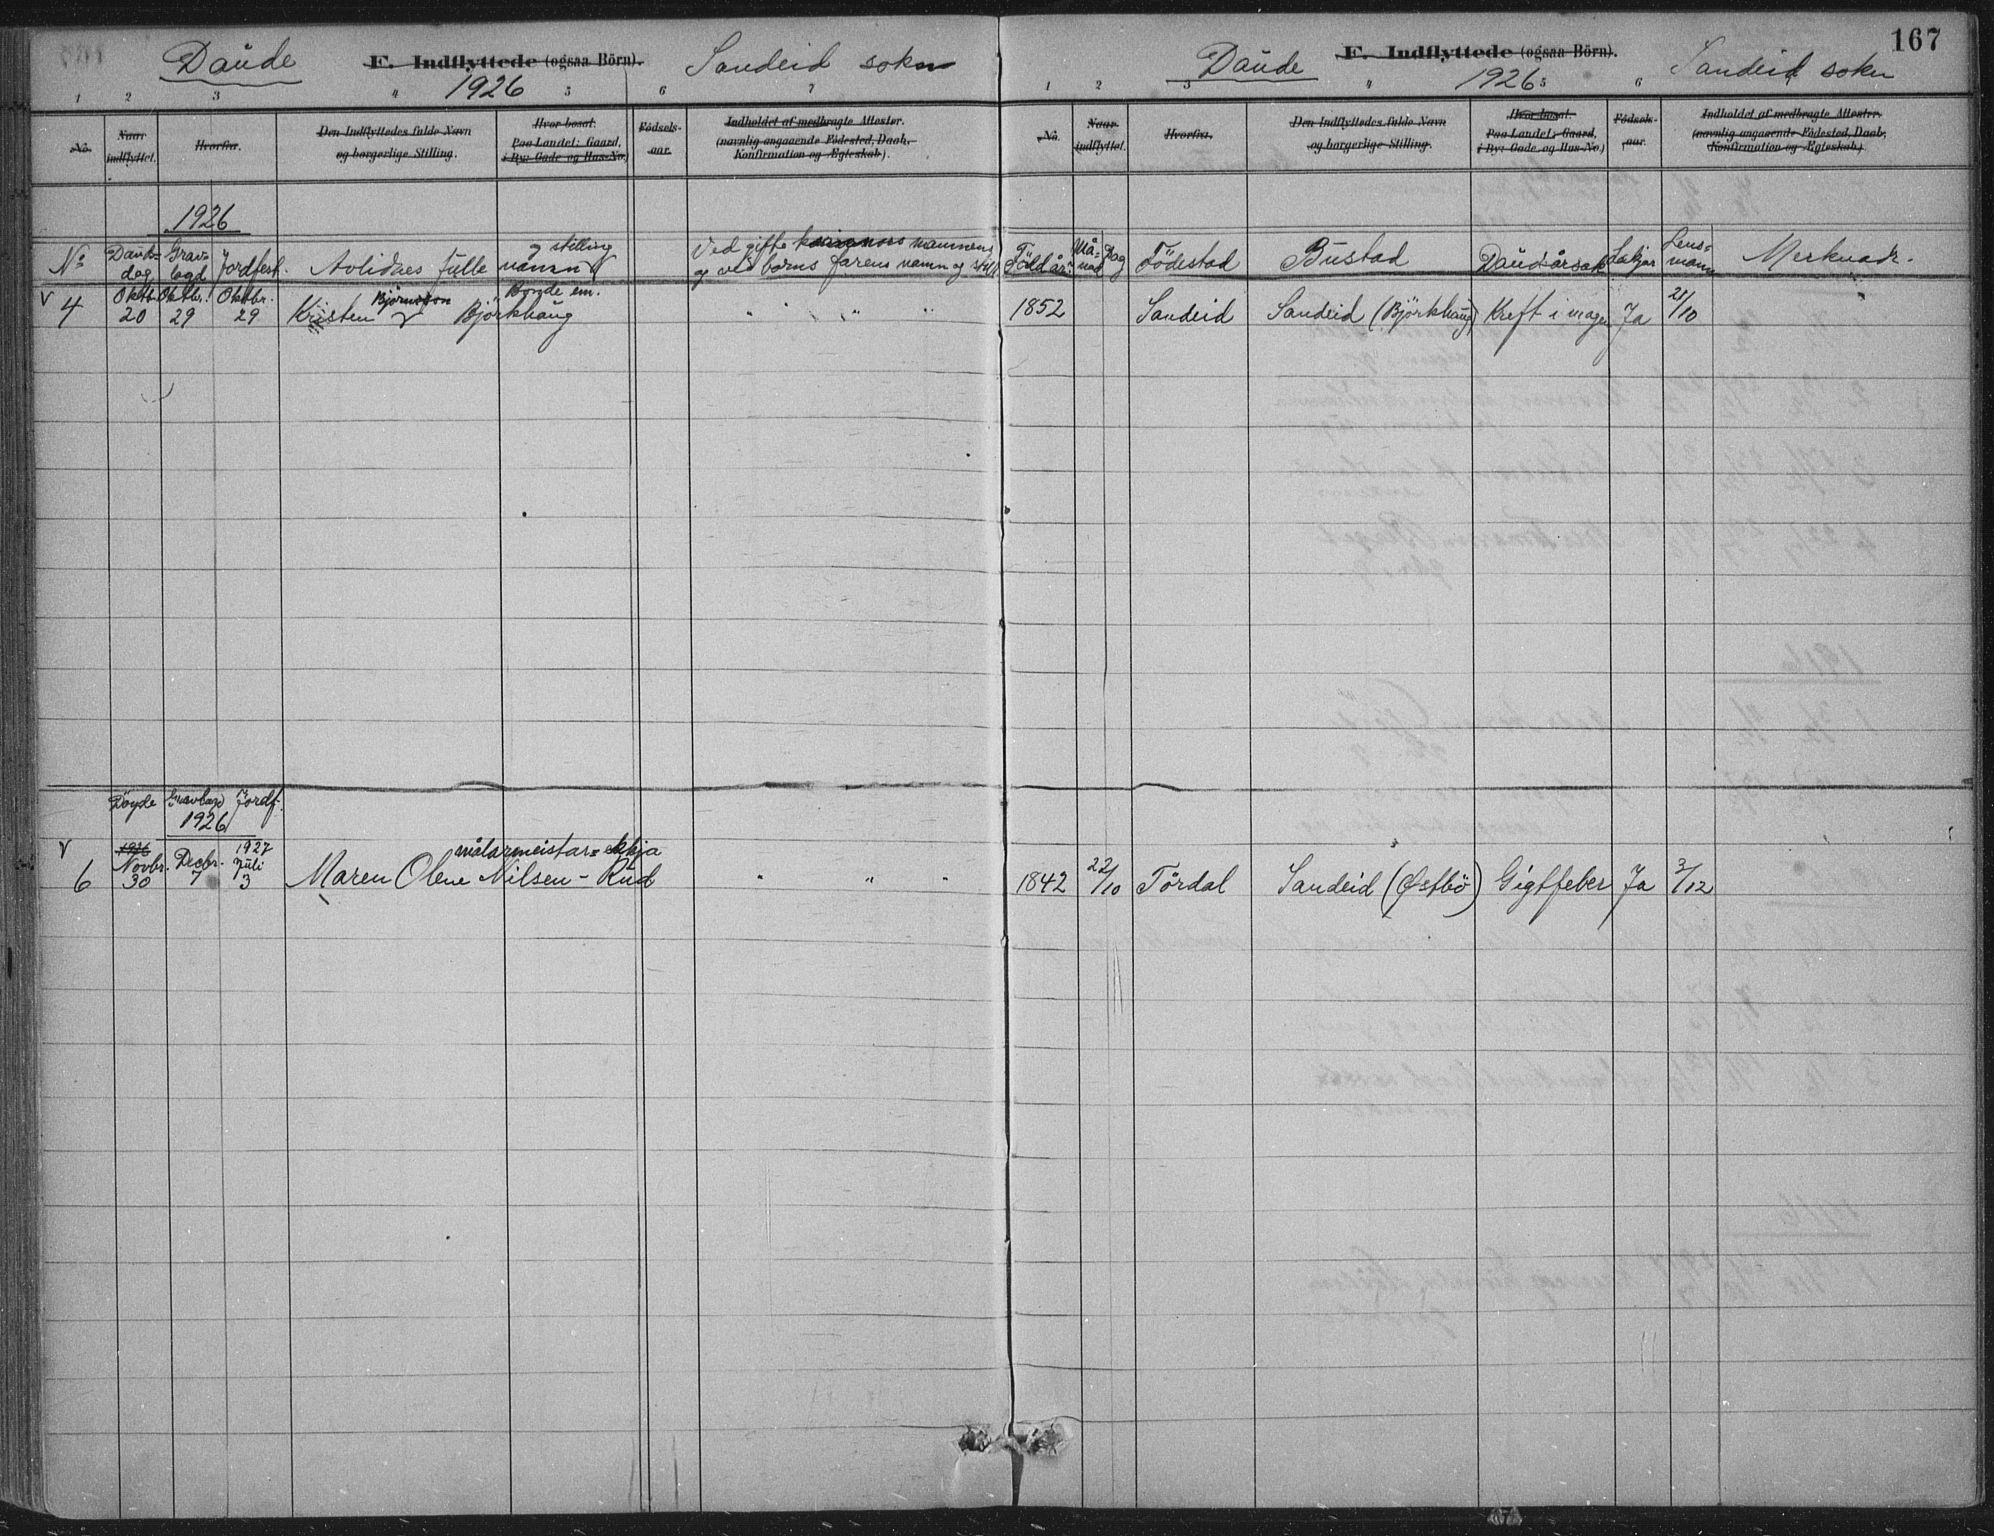 167
Daude F. Indflyttede (ogsaa Börn). Sandeid sokn
1926
1 2 3 4 5 6 7
No. Naar indflyttet. Hvorfra. Den Indflyttedes fulde Navn og borgerlige Stilling. Hvor bosat. Paa Landet: Gaard, i By: Gade og Hus-No. Födsels-aar. Indholdet af medbragte Attester. (navnlig angaaende Födested, Daab, Konfirmation og Ægteskab).
1926
No Dauds-dag Grav-lagd Jordfest. Avlidnes fulle namn og stilling Ved gifte mannens og ved borns farens namn og still.
v 4 Oktbr. 20 Oktbr. 29 Oktbr. 29 Kristen Björnson Björkhaug Bonde em. " " "
Döyde Gravlagd Jordf.
1926
v 6 1926 Novbr. 30 Decbr. 7 1927 Juli 3 Maren Olene Nilsen - Rud målarmeistar= ekkja " " "
Daude F. Indflyttede (ogsaa Börn). Sandeid sokn
1926
1 2 3 4 5 6
No. Naar indflyttet. Hvorfra. Den Indflyttedes fulde Navn og borgerlige Stilling. Hvor bosat. Paa Landet: Gaard, i By: Gade og Hus-No. Födsels-aar. Indholdet af medbragte Attester. (navnlig angaaende Födested, Daab, Konfirmation og Ægteskab).
Född år Må-nad Dag Födestad Bustad Daudsårsak Lækjar Lens-mann Merknadr.
1852 Sandeid Sandeid (Björkhaug) Kreft i magen Ja 21/10
1842 22/10 Tördal Sandeid (Østbö) Gigtfeber Ja 3/12